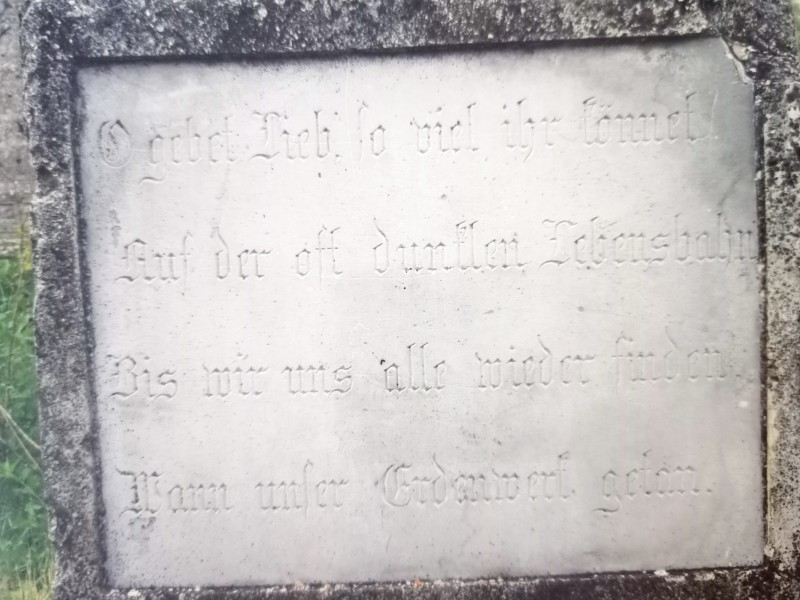 O gebet Lieb' so viel ihr könnet!
Auf der oft dunklen Lebensbahn
Bis wir uns alle wieder finden,
Wann unser Erdenwerk getan.